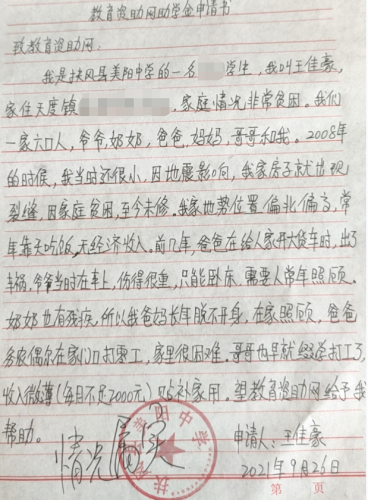 教育资助网助学金申请书
致教育资助网：
我是扶风县美阳中学的一名 学生，我叫王佳豪，
家住天度镇 ，家庭情况非常贫困。我们
一家六口人，爷爷，奶奶，爸爸，妈妈，哥哥和我。2008年
的时候，我当时还很小，因地震影响，我家房子就出现
裂缝，因家庭贫困，至今未修。我家地势位置偏北偏高，常
年靠天吃饭，无经济收入。前几年，爸爸在给人家开大货车时，出了
车祸，爷爷当时在车上，伤得很重，只能卧床，需要人常年照顾。
奶奶也有残疾，所以我爸妈长年脱不开身，在家照顾，爸爸
务农偶尔在家门口打零工，家里很困难。哥哥也早就辍学打工了，
收入微薄（每月不足2000元）贴补家用。望教育资助网给予我
帮助。
情况属实
申请人：王佳豪
2021年9月26日
第 页